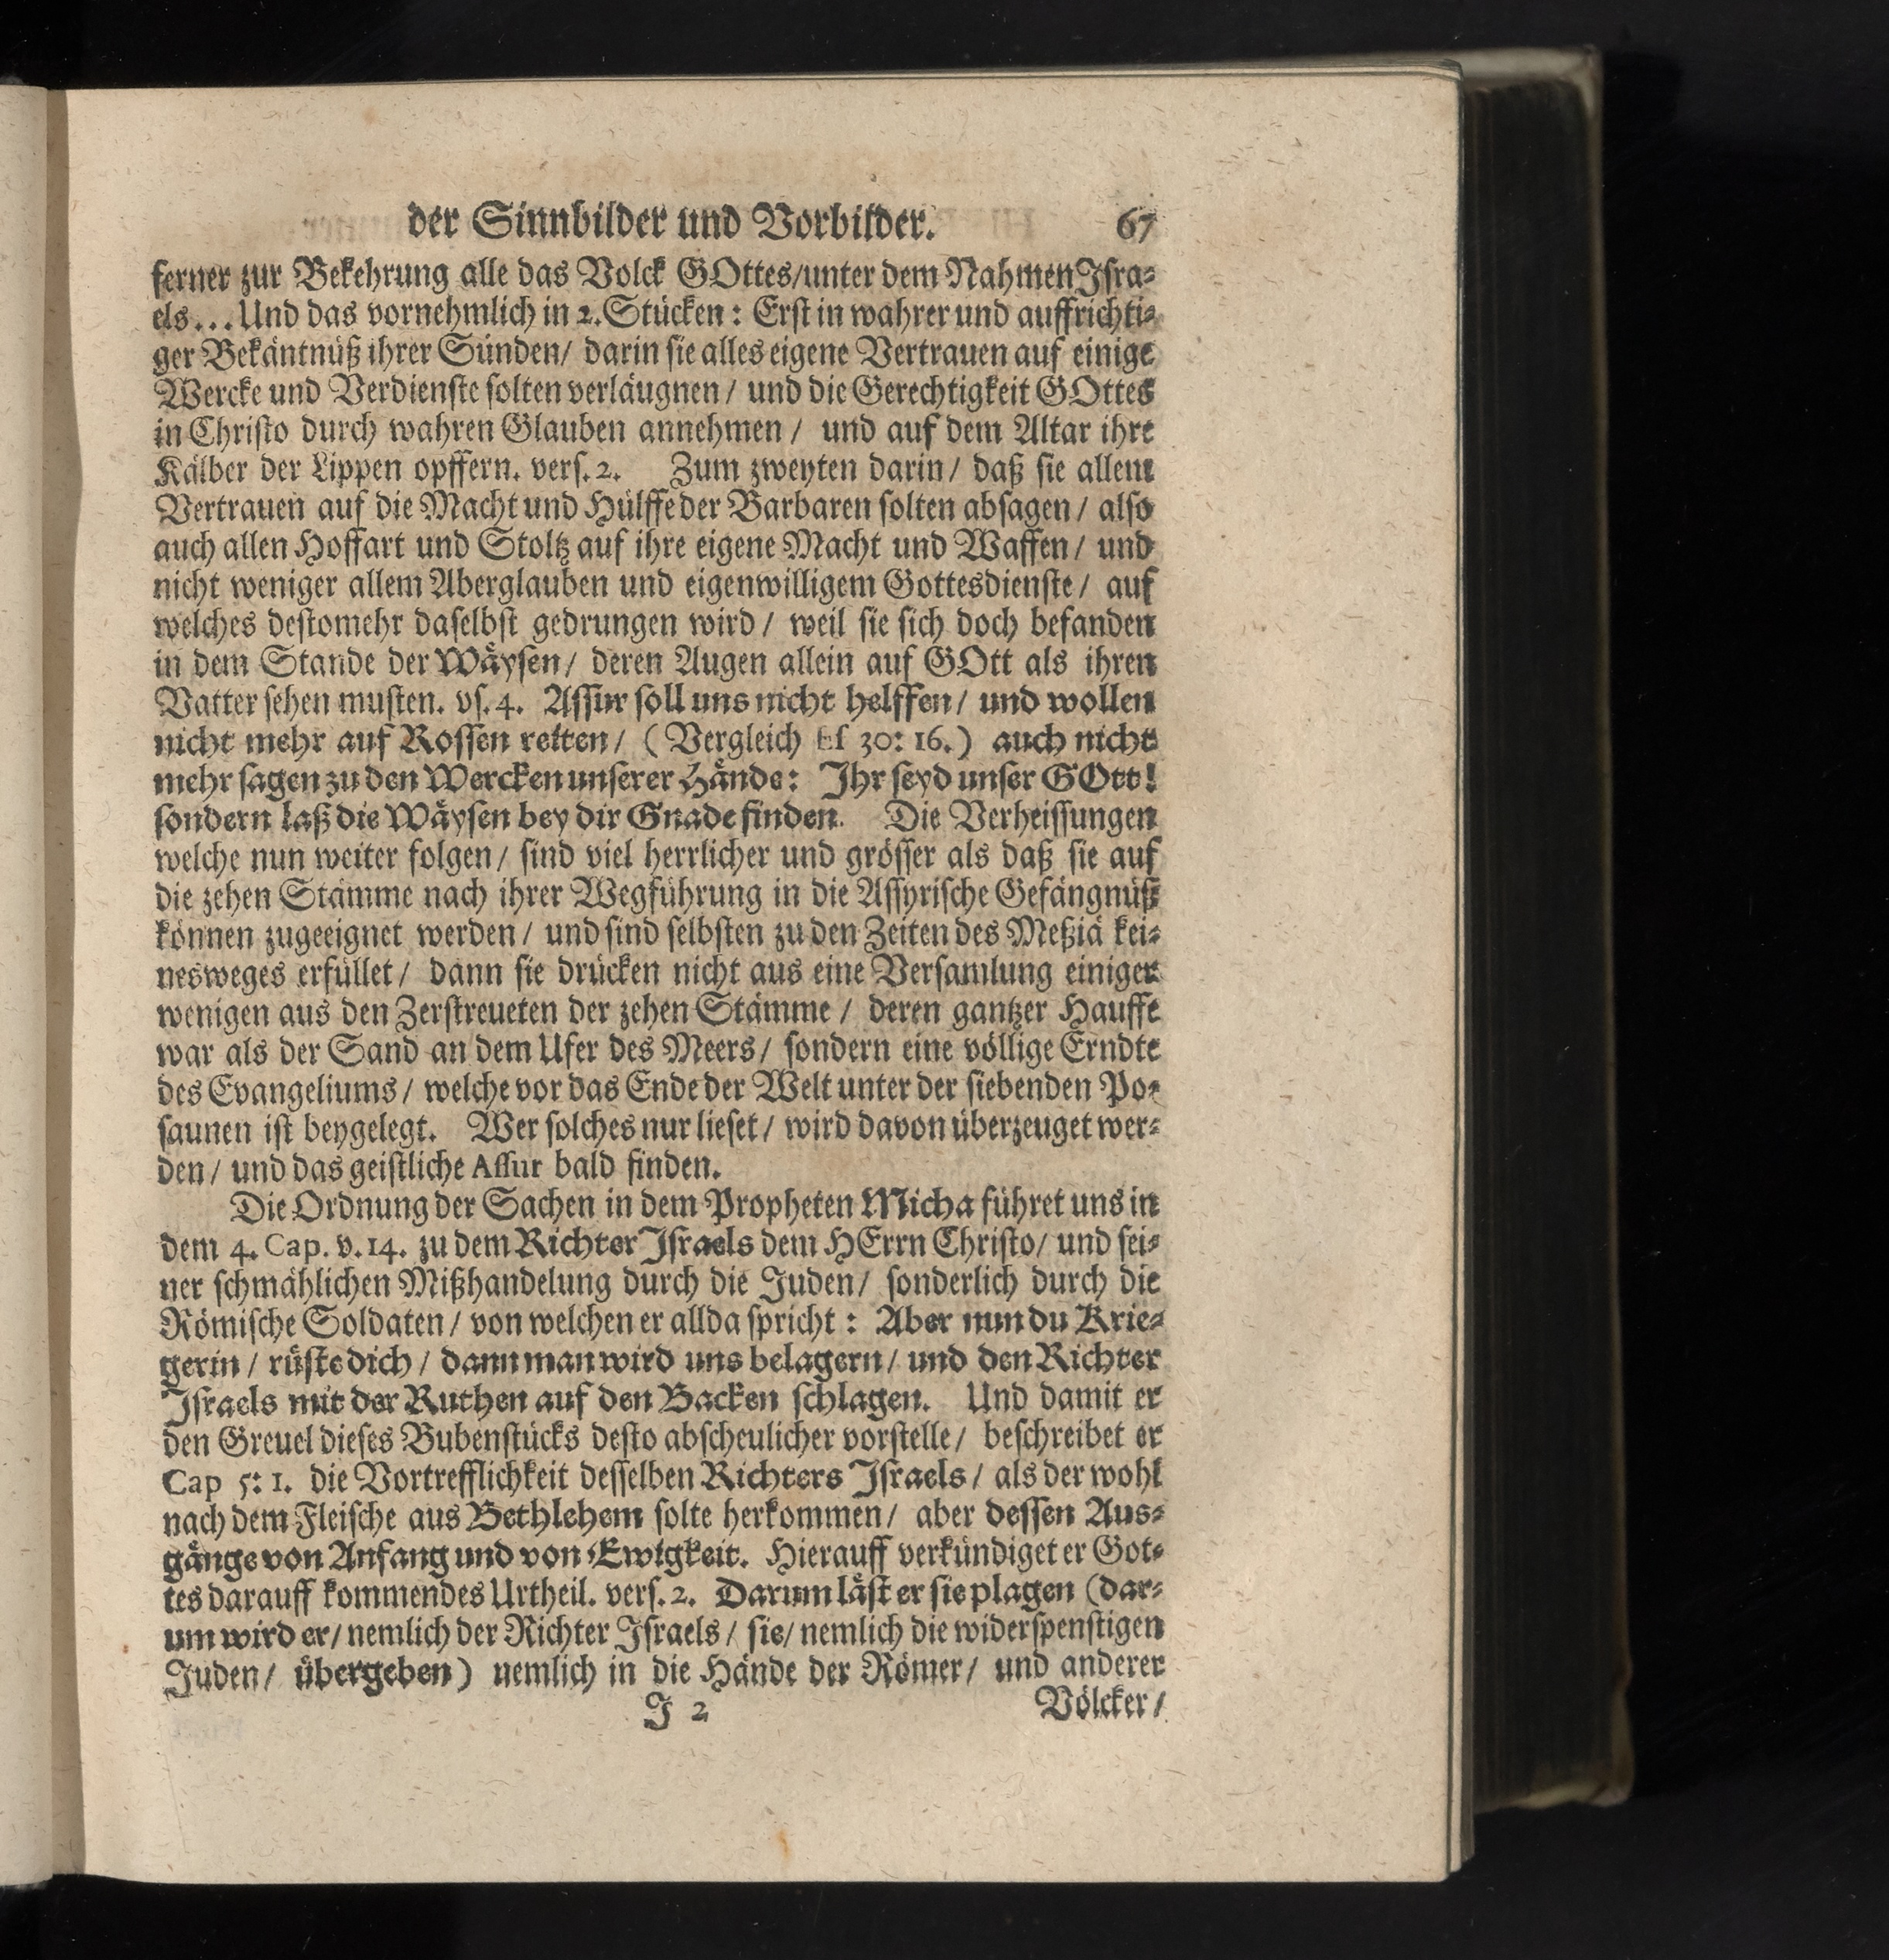 der Sinnbilder und Vorbilder. 67
ferner zur Bekehrung alle das Volck GOttes/unter dem Nahmen Isra⸗
els... Und das vornehmlich in 2. Stücken: Erst in wahrer und auffrichti⸗
ger Bekäntnüß ihrer Sünden/ darin sie alles eigene Vertrauen auf einige
Wercke und Verdienste solten verläugnen/ und die Gerechtigkeit GOttes
in Christo durch wahren Glauben annehmen/ und auf dem Altar ihre
Kälber der Lippen opffern. vers. 2. Zum zweyten darin/ daß sie allem
Vertrauen auf die Macht und Hülffe der Barbaren solten absagen/ also
auch allen Hoffart und Stoltz auf ihre eigene Macht und Waffen/ und
nicht weniger allem Aberglauben und eigenwilligem Gottesdienste/ auf
welches destomehr daselbst gedrungen wird/ weil sie sich doch befanden
in dem Stande der Wäysen/ deren Augen allein auf GOtt als ihren
Vatter sehen musten. vs. 4. Assur soll uns nicht helffen/ und wollen
nicht mehr auf Rossen reiten/ (Vergleich Es 30: 16.) auch nicht
mehr sagen zu den Wercken unserer Hände: Ihr seyd unser GOtt!
sondern laß die Wäysen bey dir Gnade finden. Die Verheissungen
welche nun weiter folgen/ sind viel herrlicher und grösser als daß sie auf
die zehen Stämme nach ihrer Wegführung in die Assyrische Gefängnüß
können zugeeignet werden/ und sind selbsten zu den Zeiten des Meßiä kei⸗
nesweges erfüllet/ dann sie drücken nicht aus eine Versamlung einiger
wenigen aus den Zerstreueten der zehen Stämme/ deren gantzer Hauffe
war als der Sand an dem Ufer des Meers/ sondern eine völlige Erndte
des Evangeliums/ welche vor das Ende der Welt unter der siebenden Po⸗
saunen ist beygelegt. Wer solches nur lieset/ wird davon überzeuget wer⸗
den/ und das geistliche Assur bald finden.
Die Ordnung der Sachen in dem Propheten Micha führet uns in
dem 4. Cap. v. 14. zu dem Richter Israels dem HErrn Christo/ und sei⸗
ner schmählichen Mißhandelung durch die Juden/ sonderlich durch die
Römische Soldaten/ von welchen er allda spricht: Aber nun du Krie⸗
gerin/ rüste dich/ dann man wird uns belagern/ und den Richter
Israels mit der Ruthen auf den Backen schlagen. Und damit er
den Greuel dieses Bubenstücks desto abscheulicher vorstelle/ beschreibet er
Cap 5: 1. die Vortrefflichkeit desselben Richters Israels/ als der wohl
nach dem Fleische aus Bethlehem solte herkommen/ aber dessen Aus⸗
gänge von Anfang und von Ewigkeit. Hierauff verkündiget er Got⸗
tes darauff kommendes Urtheil. vers. 2. Darum läst er sie plagen (dar⸗
um wird er/ nemlich der Richter Israels/ sie/ nemlich die widerspenstigen
Juden/ übergeben) nemlich in die Hände der Römer/ und anderer
J 2 Völcker/